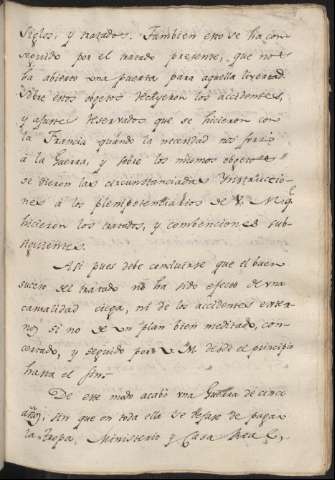 siglos, y tratados. Tambien esto se ha con
seguido por el tratado presente, que nos
ha abierto una puerta para aquella livertad
sobre estos objetos de
los accidentes,
y ajustes reservados que se hicieron con
la Francia quando la necesidad nos forzó
à la Guerra, y sobre los mismos objetos
se dieron las circunstanciadas Instruccio
nes á los plenipotenciarios de V. Mag
hicieron los tratados, y combenciones sub
siguientes.
Asi pues debe concluirse que el buen
suceso del tratado no ha sido efecto de una
casualidad ciega, ni de los accidentes exter
nos si no de un plan bien meditado, con
certado, y seguido por V. M. desde el principio
hasta el fin.
De este modo acabó una Guerra de cinco
años; sin que en toda ella se dejase de pagar
la tropa, Ministerio y Casa Real,